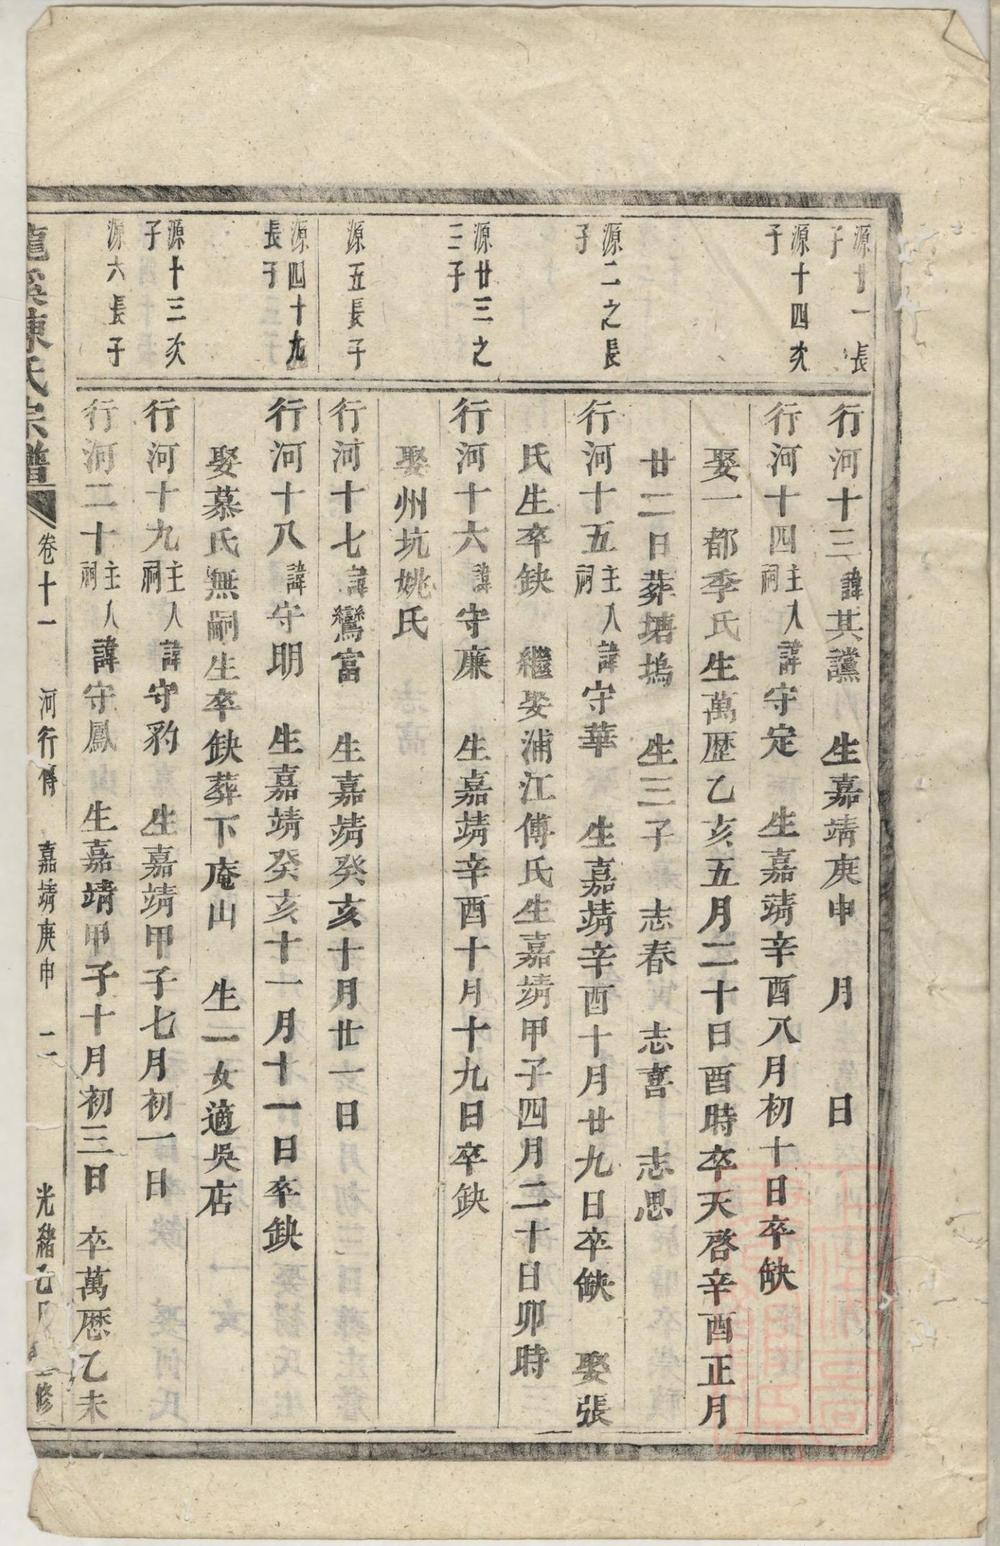 源廿一長
子
行河十三諱其讜　生嘉靖庚申　月　　日
源十四次
子
行河十四主人祠諱守定　生嘉靖辛酉八月初十日卒缺
娶一都季氏生萬歷乙亥五月二十日酉時卒天啓辛酉正月
廿二日葬塘塢　生三子　志春　志喜　志思
源二之長
子
行河十五主人祠諱守華　生嘉靖辛酉十月廿九日卒缺　娶張
氏生卒缺　繼娶浦江傅氏生嘉靖甲子四月二十日卯時
源廿三之
三子
行河十六諱守廉　生嘉靖辛酉十月十九日卒缺
娶州坑姚氏
源五長子
行河十七諱鸞富　生嘉靖癸亥十月廿一日
源四十九
長子
行河十八諱守明　生嘉靖癸亥十一月十一日卒缺
娶慕氏無嗣生卒缺葬下庵山　生一女適吳店
源十三次
子
行河十九主人祠諱守豹　生嘉靖甲子七月初一日
源六長子
行河二十主人祠諱守鳳　生嘉靖甲子十月初三日　卒萬歷乙未
龍溪陳氏宗譜　卷十一　河行傳　嘉靖庚申　二　光緒　修